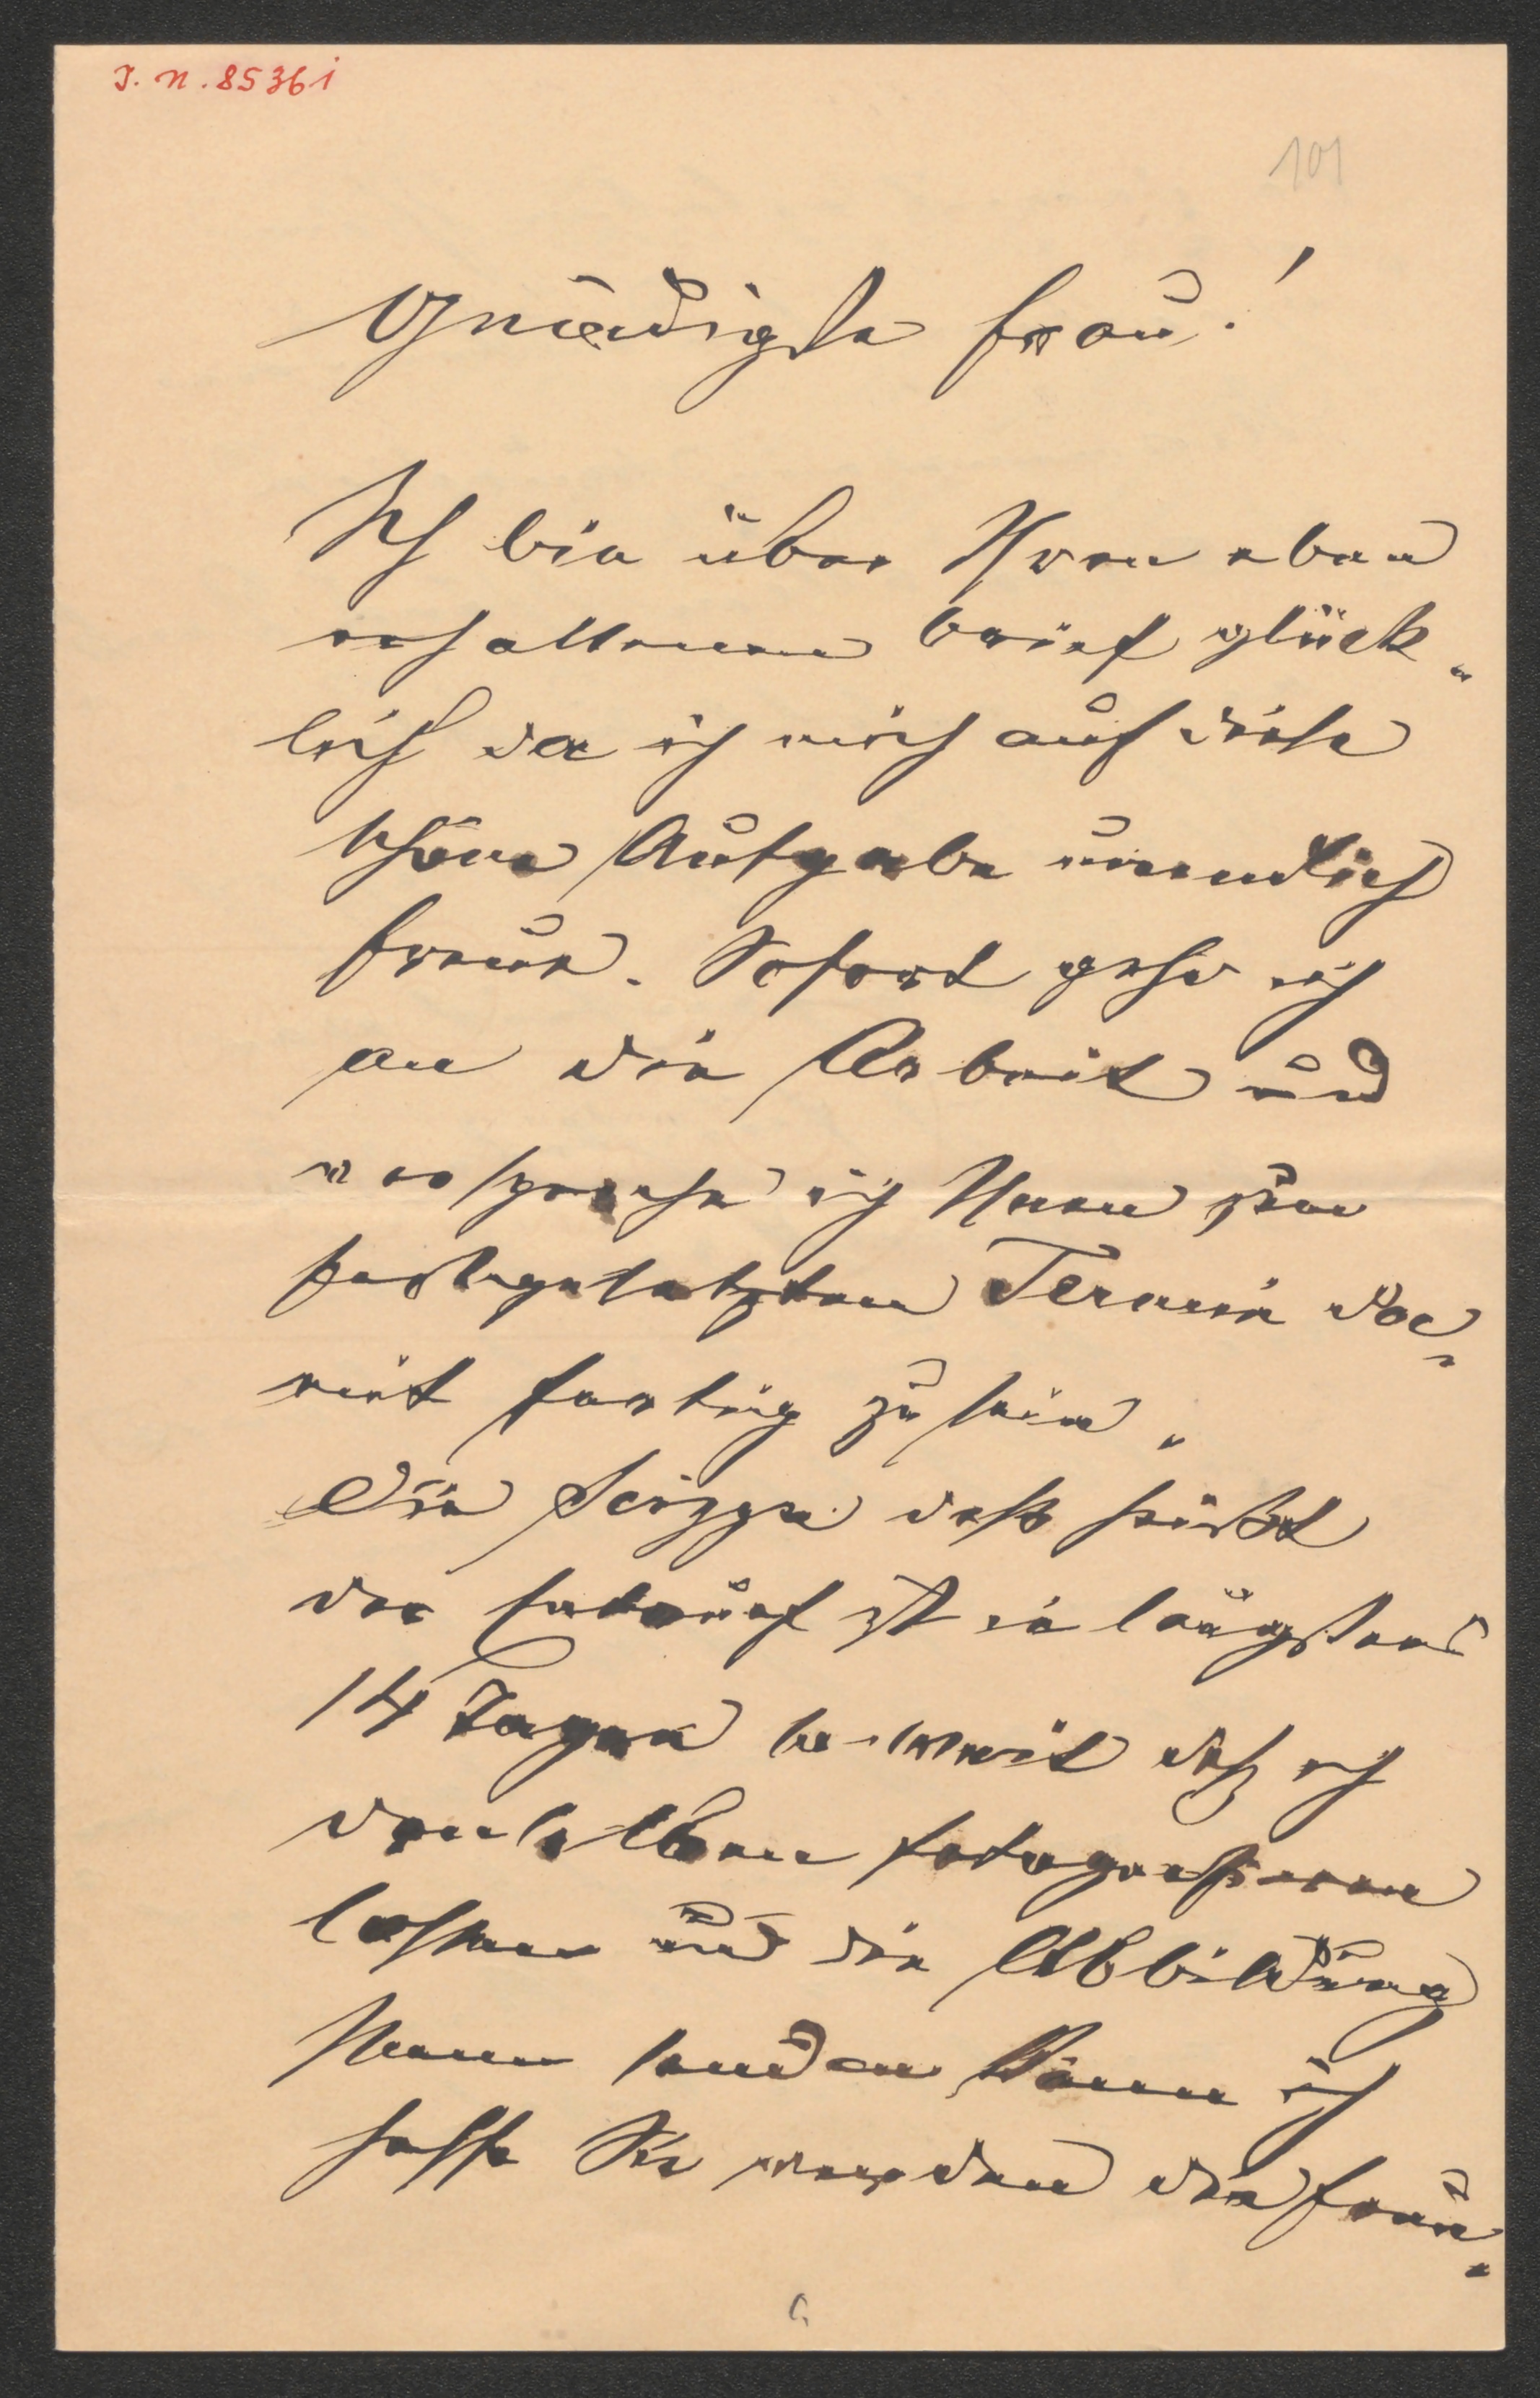 J. N. 85361
101
Gnädigste Frau!
Ich bin über Ihren eben
erhaltenen Brief glück„
lich da ich mich auf diese
schöne Aufgabe unendlich
freue. Sofort gehe ich
an die Arbeit und
verspreche ich Ihnen zum
festgesetzten Termin da„
mit fertig zu sein.
Die Scizze das heißt
der Entwurf ist in längstens
14 Tagen so weit daß ich
denselben fotografieren
lassen und die Abbildung
Ihnen senden kann ich
hoffe Sie werden die Freu„